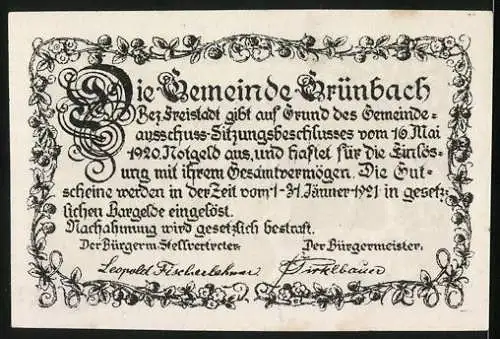 Die Gemeinde Grünbach
Bez. Freistadt gibt auf Grund des Gemeinde-
ausschuss-Sitzungsbeschlusses vom 16 Mai
1920. Notgeld aus, und haftet für die Einlös-
ung mit ihrem Gesamtvermögen. Die Gut-
scheine werden in der Zeit vom 1-31 Jänner 1921 in gesetz-
lichen Bargelde eingelöst.
Nachahmung wird gesetzlich bestraft.
Der Bürgerm. Stellvertreter. Der Bürgermeister.
Leopold Pirklbauer